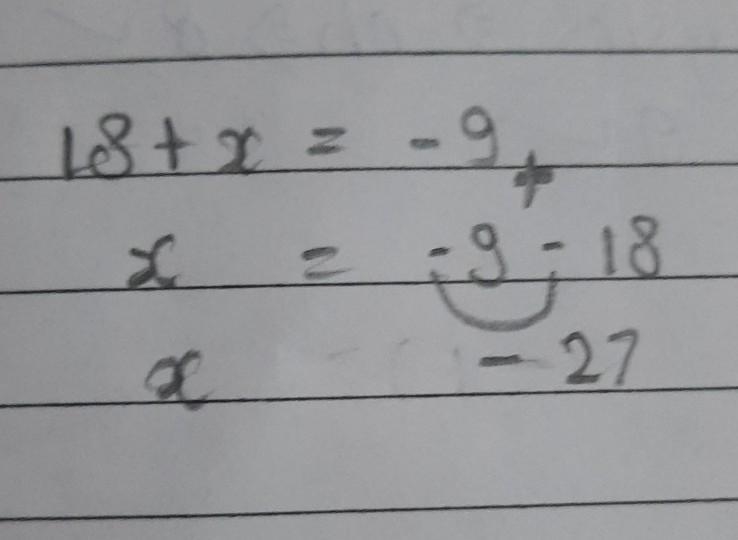 18 + x = - 9
+
x = - 9 - 18
x - 27